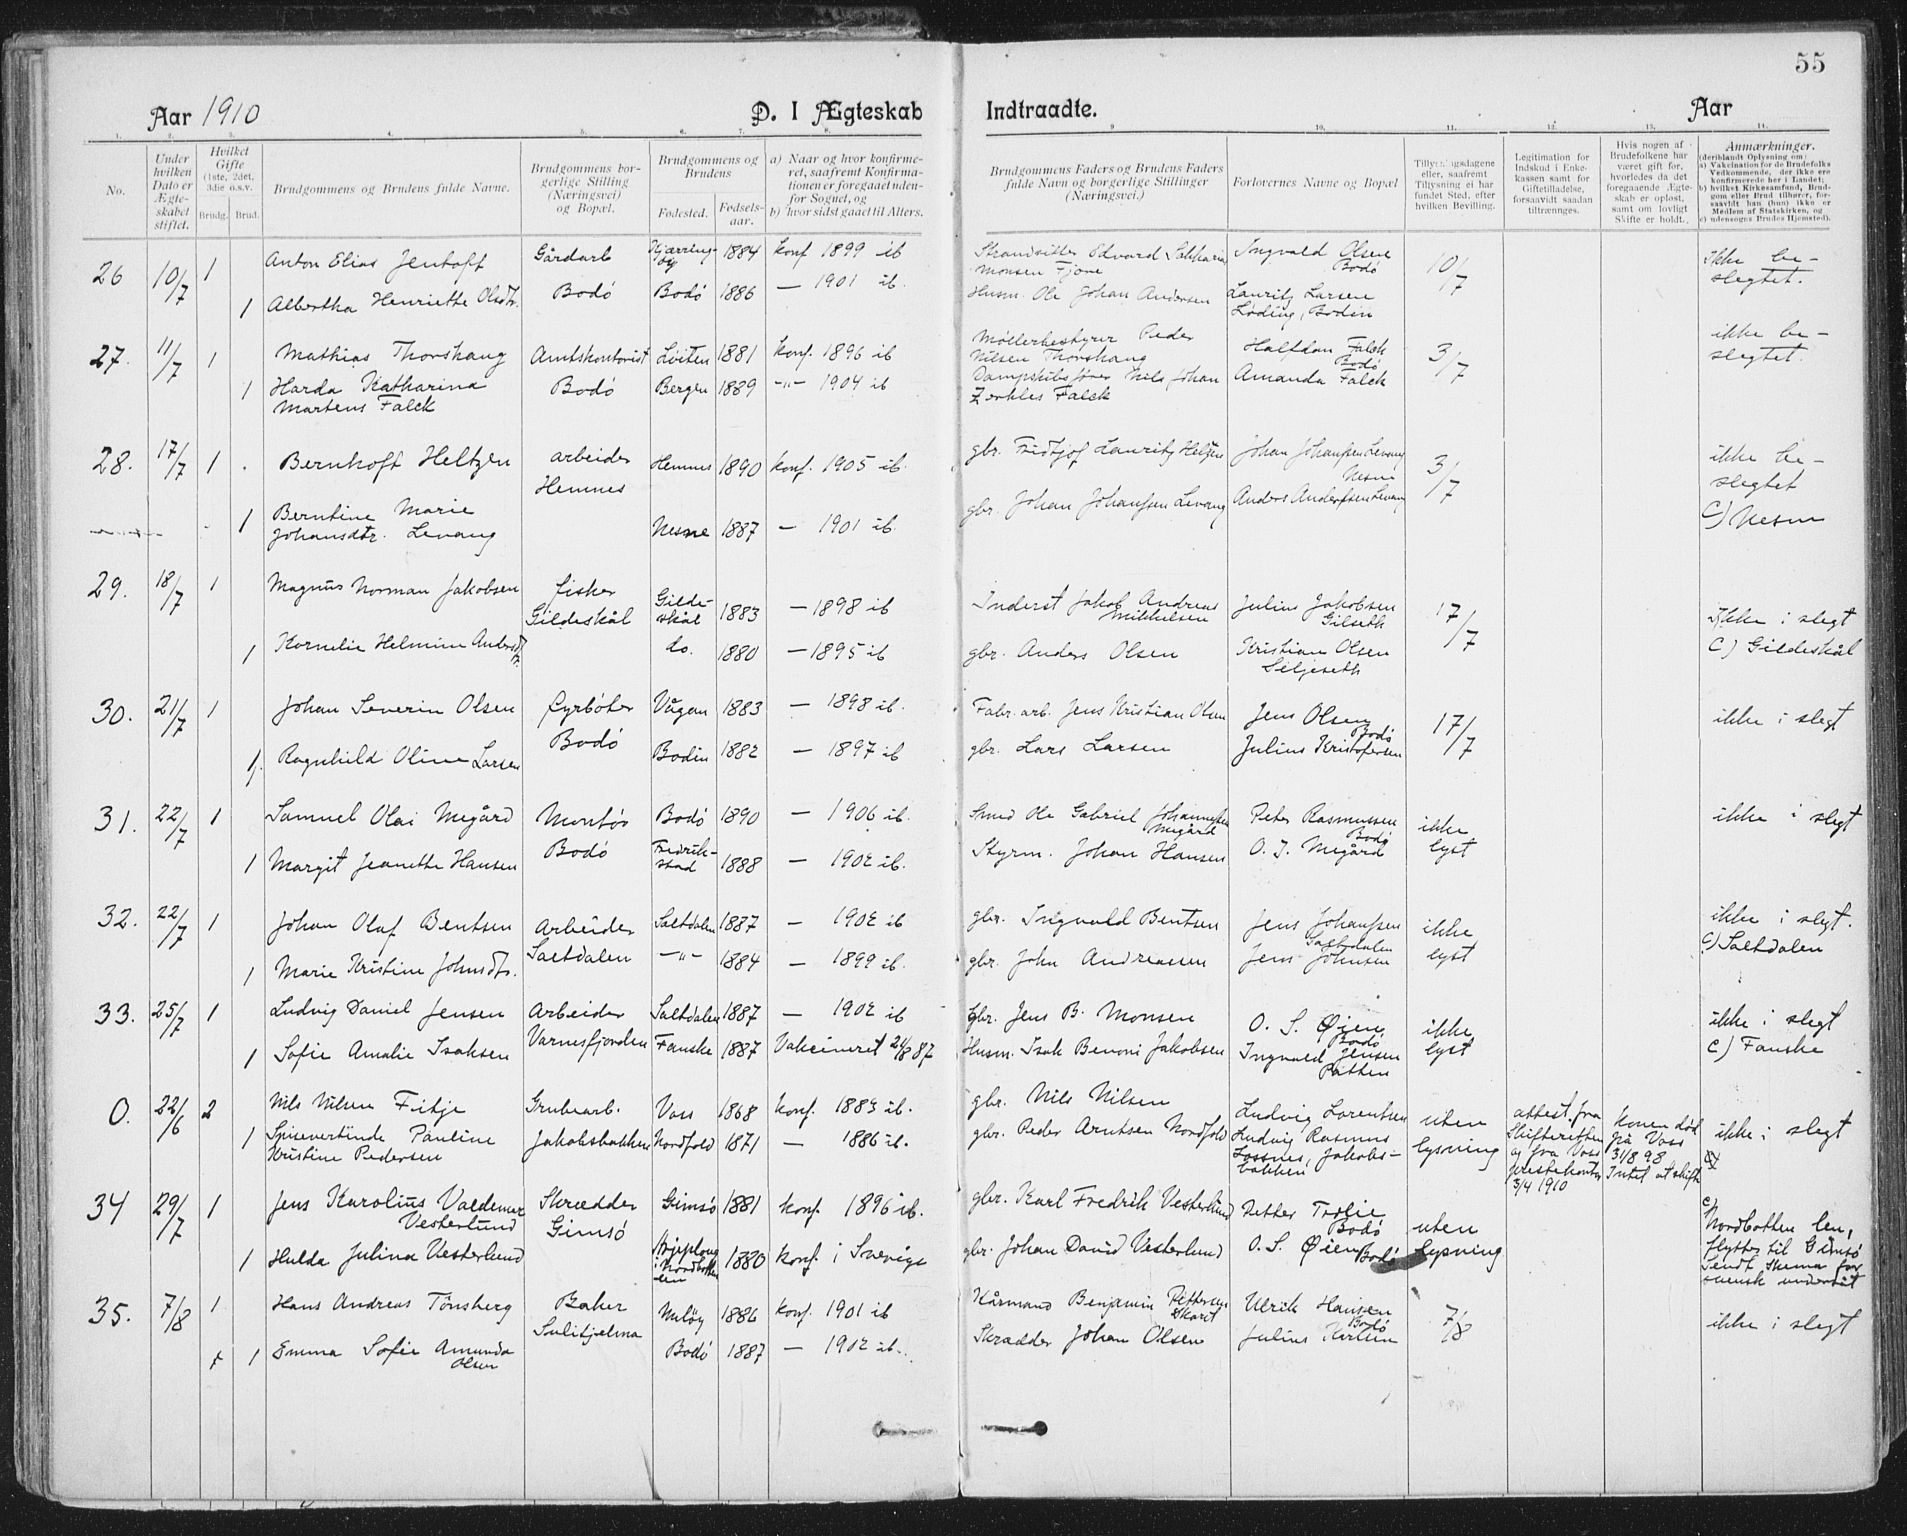 55
Aar 1910
D. I Ægteskab Indtraadte.
Aar
1. 2. 3. 4. 5. 6. 7. 8. 9 10. 11. 12. 13. 14.
No.
Under hvilken Dato er Ægteskabet stiftet.
Hvilket Gifte (1ste, 2det, 3die o.s.v.
Brudg. Brud.
Brudgommens og Brudens fulde Navne.
Brudgommens borgerlige Stilling (Næringsvei) og Bopæl.
Brudgommens og Brudens
Fødested. Fødselsaar.
a) Naar og hvor konfirmeret, saafremt Konfirmationen er foregaaet udenfor Sognet, og
b) hvor sidst gaaet til Alters.
Brudgommens Faders og Brudens Faders fulde Navn og borgerlige Stillinger (Næringsvei.)
Forlovernes Navne og Bopæl
eller, saafremt ei Tillysning ei har fundet Sted, efter hvilken Bevilling.
Legitimation for Indskud i Enkekassen samt for Giftetilladelse, forsaavidt saadan tiltrænges.
Hvis nogen af Brudefolkene har været gift før, hvorledes da det foregaaende Ægteskab er opløst, samt om lovligt Skifte er holdt.
Anmærkninger.
(deriblandt Oplysning om:
a) Vakcination for de Brudefolks Vedkommende, der ikke ere konfirmerede her i Landet;
b) hvilket Kirkesamfund, Brudgom eller Brud tilhører, forsaavidt han (hun) ikke er Medlem af Statskirken, og
c) udensogns Brudes Hjemsted).
26 10/7 1 Anton Elias Jentoft Gårdarb Kjærringöy 1884 konf 1899 ib Strandsitter Edvard Sakkarias Monsen Fjøve Ingvald Olsen Bodö 10/7 Ikke beslegtet.
1 Albertha Henriette Olsdtr. Bodö Bodö 1886 — 1901 ib. Husm. Ole Johan Andersen Lauritz Larsen Löding, Bodin
27. 11/7 1 Mathias Thorshaug Amtskontorist Löiten 1881 konf. 1896 ib Møllerbestyrer Peder Nilsen Thorshaug Halfdan Falck Bodö 3/7 ikke beslegtet.
1 Harda Katharina Martens Falck Bodö Bergen 1889 -"- 1904 ib Dampskibsfører Nils Johan Falck Amanda Falck
28. 17/7 1 . Bernhoft Heltzen arbeider Hemnes Hemnes 1890 konf. 1905 ib. gbr. Fridtjof Lauritz Heltzen Johan Johanssen Levang Nesne 3/7 ikke beslegtet
1 Berntine Marie Johansdtr. Levang Nesne 1887 — 1901 ib. gbr. Johan Johanssen Levang Anders Anderssen Levang C) Nesne
29. 18/7 1 Magnus Norman Jakobsen fisker Gildeskål Gildeskål 1883 — 1898 ib Inderst Jakob Andreas Mikkelsen Julius Jakobsen Gilseth 17/7 Ikke i slegt
1 Kornelie Helmine Andersdtr. do. 1880 — 1895 ib gbr. Anders Olsen Kristian Olsen Seljeseth C) Gildeskål
30. 21/7 1 Johan Severin Olsen fyrböter Vågan 1883 — 1898 ib. Fabr. arb. Jens Kristian Olsen Jens Olsen Bodö 17/7 ikke i slegt
1. Ragnhild Oline Larsen Bodö Bodin 1882 — 1897 ib gbr. Lars Larsen Julius Kristofersen
31. 22/7 1 Samuel Olai Megård Montör Bodö 1890 — 1906 ib. Smed Ole Gabriel Johannessen Megård Peter Rasmussen Bodö ikke lyst ikke i slegt
1 Margit Jeanette Hansen Bodö Fredrikstad 1888 — 1902 ib. Styrm. Johan Hansen O. J. Megård
32. 22/7 1 Johan Olaf Bentsen Arbeider Saltdalen 1887 — 1902 ib gbr. Ingvald Bentsen Jens Johanssen Saltdalen ikke lyst ikke i slegt.
1 Marie Kristine Johnsdtr. Saltdalen -"- 1884 — 1899 ib. gbr. John Andreassen Jens Johnsen C) Saltdalen
33. 25/7 1 Ludvig Daniel Jensen Arbeider Saltdalen 1887 — 1902 ib gbr. Jens B. Monsen O. S. Øien Bodö ikke lyst ikke i slegt
1 Sofie Amalie Isaksen Varnesfjorden Fauske 1887 Vakcineret 24/8 87 Husm. Isak Benoni Jakobsen Ingvald Jensen C) Fauske
0. 22/6 2 Nils Nilsen Fitje Grubearb. Voss 1868 konf. 1883 ib. gbr. Nils Nilsen Ludvig Lorentsen uten lysning attest fra Skifteretten og fra Voss 3/4 1910 konen död på Voss 31/8 98, Intet at skifte ikke i slegt
1 Pauline Kristine Pedersen Jakobsbakken Nordfold 1871 — 1886 ib. gbr. Peder Arntsen Nordfold Ludvig Rasmus Jakobsbakken
34 29/7 1 Jens Karolius Valdemar Vesterlund Skrædder Gimsö Gimsö 1881 konf. 1896 ib. gbr. Karl Fredrik Vesterlund Petter Trolie Bodö uten lysning
1 Hulda Julina Vesterlund Arjeploug i Nordbotten len 1880 konf. i Sverige gbr. Johan David Vesterlund O. S. Øien Bodö c) Nordbotten len, flytter til Gimsö Sendt Skema for svensk undersåt
35. 7/8 1 Hans Andreas Tönsberg Baker Sulitjelma Melöy 1886 konf. 1901 ib Benjamin Pettersen Ulrik Hansen Bodö 7/8 ikke i slegt
1 Emma Sofie Amanda Olsen Bodö 1887 — 1902 ib. Skrædder Johan Olsen Julius